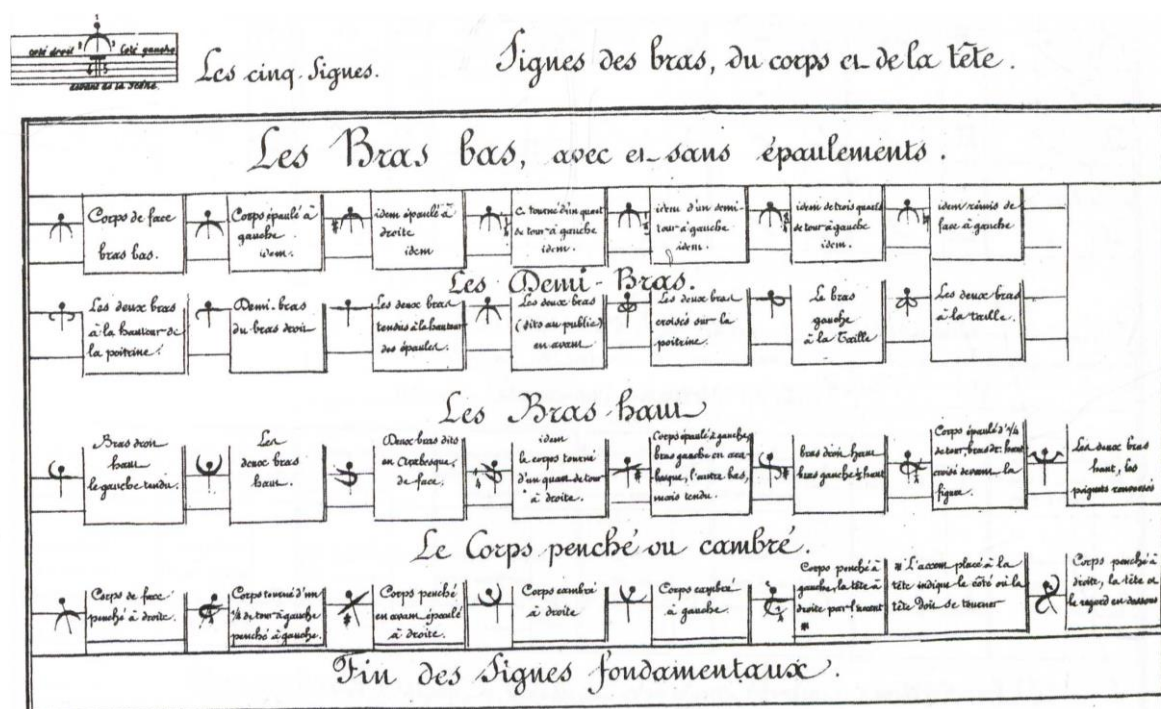 1
côté droit 2 3 Côté gauche
4 5
devant de la Scène.
Les cinq Signes.
Signes des bras, du corps et de la tête.
Les Bras bas, avec et sans épaulements.
Corps de face
bras bas.
Corps épaulé à
gauche
idem.
idem épaulé à
droite
idem
C. tourné d'un quart
de tour à gauche
idem.
idem d'un demi-
tour à gauche
idem.
idem de trois quarts
de tour à gauche
idem.
idem remis de
face à gauche
Les Demi-Bras.
Les deux bras
à la hauteur de
la poitrine.
Demi-bras
du bras droit
Les deux bras
tendus à la hauteur
des épaules.
Les deux bras
(dits au public)
en avant
Les deux bras
croisés sur la
poitrine.
Le bras
gauche
à la Taille
Les deux bras
à la taille.
Les Bras haut
Bras droit
haut
le gauche tendu.
Les
deux bras
haut.
Deux bras dits
en Arabesque,
de face.
idem
le corps tourné
d'un quart de tour
à droite.
Corps épaulé à gauche,
bras gauche en ara-
besque, l'autre bas,
mais tendu.
bras droit haut
bras gauche ½ haut
Corps épaulé d'¼
de tour, bras dr. haut
croisé devant la
figure
Les deux bras
haut, les
poignets renversés
Le Corps penché ou cambré.
Corps de face
penché à droite.
Corps tourné d'un
¼ de tour à gauche
penché à gauche.
Corps penché
en avant épaulé
à droite.
Corps cambré
à droite
Corps cambré
à gauche.
Corps penché à
gauche, la tête à
droite par l'accent
※
※ L'accent placé à la
tête indique le côté où la
tête doit se tourner
Corps penché à
droite, la tête et
le regard en dessous
Fin des Signes fondamentaux.